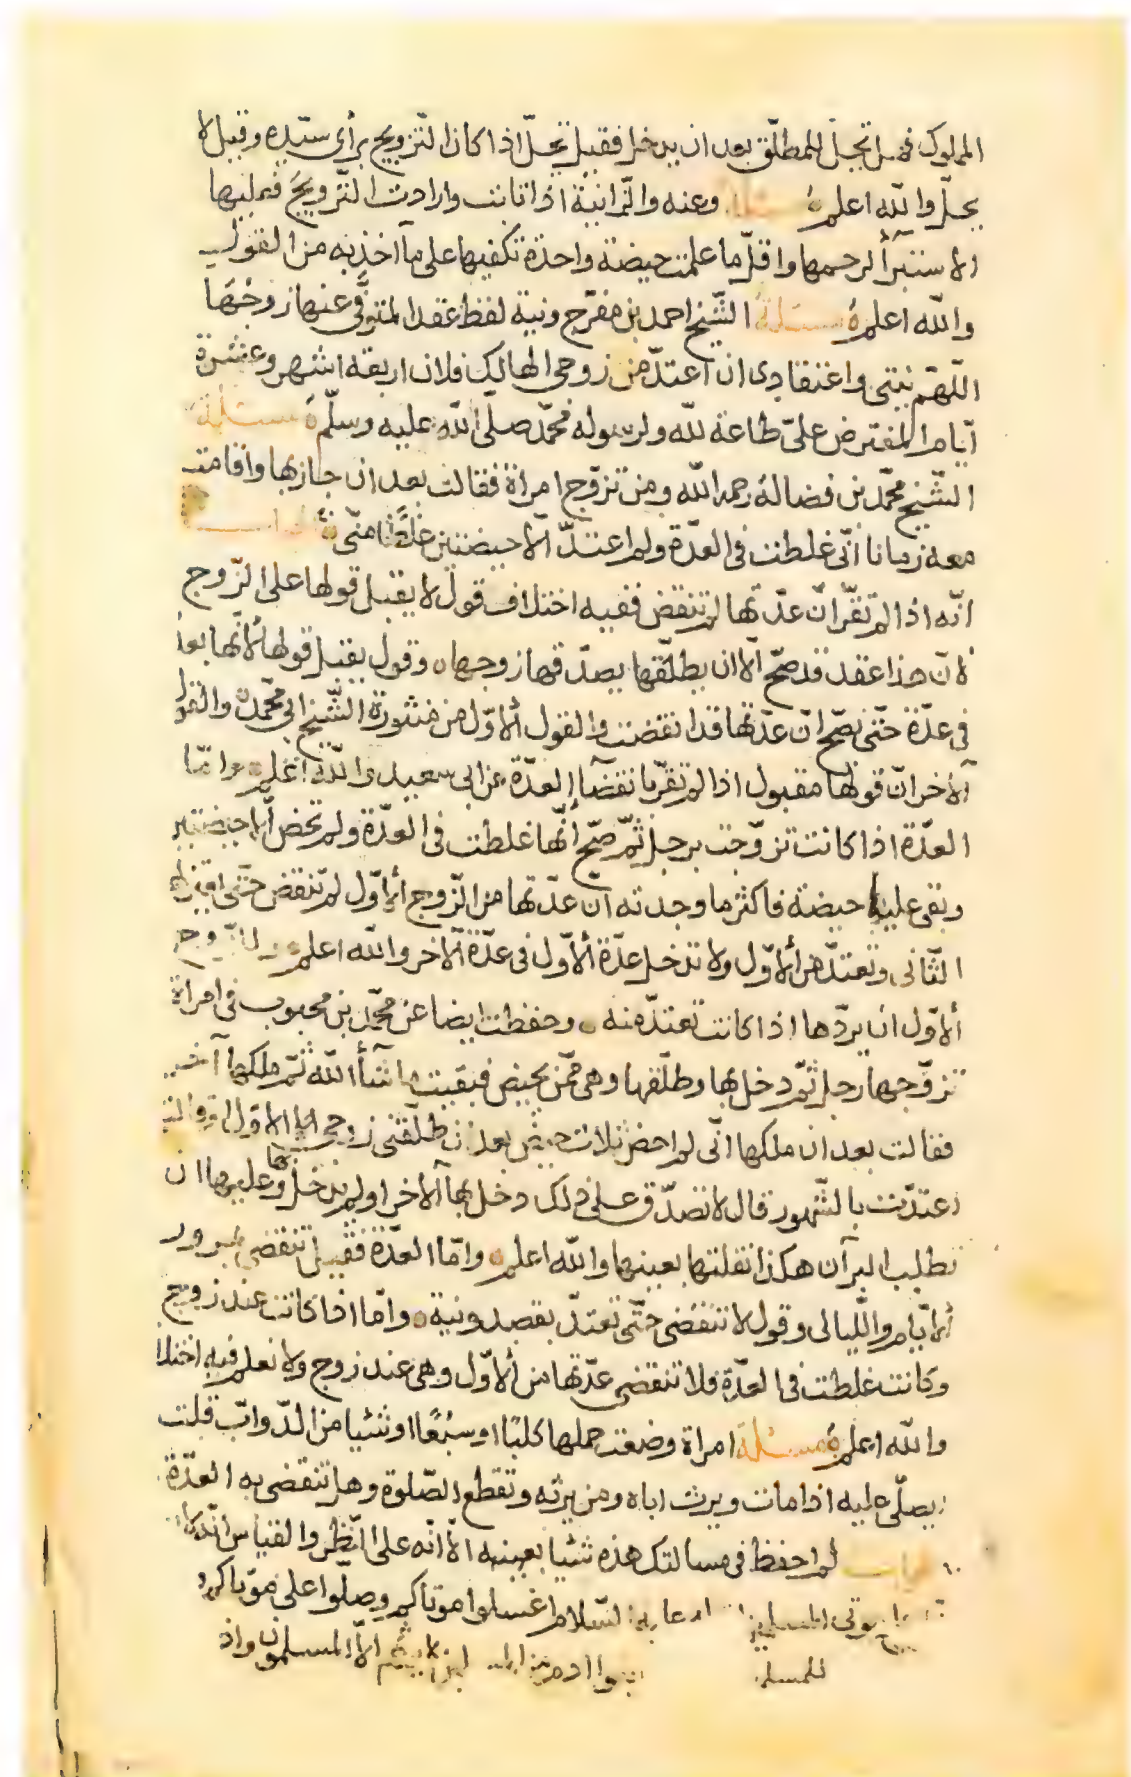 المملوك فهل تحل للمطلّق بعد ان يدخل فقيل تحلّ اذا كان التّزويج برأي سيّده وقيل لا
يحلّ والله اعلم مسئلة وعنه والزّانية اذا تابت وارادت التّزويج فعليها
الاستبرأ لرحمها واقلّ ما علمت حيضة واحدة تكفيها على ما آخذ به من القول
والله اعلم مسئلة الشّيخ احمد بن مفرّج ونية لفظ عقد المتوفّى عنها زوجها
اللّهمّ نيتي واعتقادي ان اعتدّ من زوجي الهالك فلان اربعة اشهر وعشرة
ايّام المفترض عليّ طاعة لله ولرسوله محمّد صلّى الله عليه وسلّم مسئلة
الشّيخ محمّد بن فضالة رحمه الله ومن تزوّج امراة فقالت بعد ان جاز بها واقامت
معه زمانا انّي غلطت في العدّة ولم اعتدّ الّا حيضتين غلطا منّي
انّه اذا لم تقرّ انّ عدّتها لم تنقض ففيه اختلاف قول لا يقبل قولها على الزّوج
لانّ هذا عقد قد صحّ الّا ان يطلّقها يصدّقها زوجها وقول يقبل قولها لانّها بعد
في عدّة حتّى يصّح انّ عدّتها قد انقضت والقول الاوّل من منثورة الشّيخ ابي محمّد والقول
الآخر انّ قولها مقبول اذا لم تقرّ بانقضآ العدّة عن ابي سعيد والله اعلم وامّا
العدّة اذا كانت تزوّجت برجل ثمّ صحّ انّها غلطت في العدّة ولم تحض الّا حيضتين
وبقى عليها حيضة فاكثر ما وجدته ان عدّتها من الزّوج الاوّل لم تنقض حتّى
الثّاني وتعتدّ من الاوّل ولا تدخل عدّة الاوّل في عدّة الآخر والله اعلم وللزّوج
الاوّل ان يردّها اذا كانت تعتدّ منه وحفظت ايضا عن محمّد بن محبوب في امراة
تزوّجها رجل ثمّ دخل بها وطلّقها وهي ممّن يحيض فبقيت ما شآ الله ثمّ ملكها آخر
فقالت بعد ان ملكها انّي لم احض ثلاث حيض بعد ان طلّقني زوجي الاوّل
اعتدّت بالشّهور قال لا تصدّق على ذلك دخل بها الآخر او لم يدخل بها وعليها ان
تطلب البرآن هكذا نقلتها بعينها والله اعلم وامّا العدّة فقيل تنقضي بمرور
الايّام واللّيالي وقول لا تنقضي حتّى تعتدّ بقصد ونية وامّا اذا كانت عند زوج
وكانت غلطت في العدّة فلا تنقضي عدّتها من الاوّل وهي عند زوج ولا نعلم فيه اختلافا
والله اعلم مسئلة امراة وضعت حملها كلبًا او سبُعًا او شيئا من الدّوابّ قلت
يصلّى عليه اذا مات ويرث اباه ومن يرثه وتقطع الصّلوة وهل تنقضي به العدّة
لم احفظ في مسالتك هذه شيئا بعينه الّا انّه على النّظر والقياس انّه
موتى المسلمين السّلام اغسلوا موتاكم وصلّوا على موتاكم و
الّا المسلمون واذ